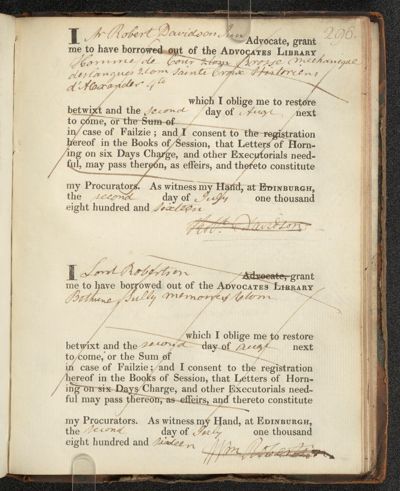 296.
I Mr Robert Davidson Junr Advocate, grant
me to have borrowed out of the ADVOCATES LIBRARY
Homme de Cour 2tom Brosse Mechanique
des langues 2tom Sainte Croix Historiens
d'Alexander 4to
which I oblige me to restore
betwixt and the second day of Augt next
to come, or the Sum of
in case of Failzie; and I consent to the registration
hereof in the Books of Session, that Letters of Horn-
ing on six Days Charge, and other Executorials need-
ful, may pass thereon, as effeirs, and thereto constitute
my Procurators. As witness my Hand, at EDINBURGH,
the second day of July one thousand
eight hundred and sixteen
Robt. Davidson
I Lord Robertson Advocate, grant
me to have borrowed out of the ADVOCATES LIBRARY
Bethune Sully memoires 6tom
which I oblige me to restore
betwixt and the second day of Augt next
to come, or the Sum of
in case of Failzie; and I consent to the registration
hereof in the Books of Session, that Letters of Horn-
ing on six Days Charge, and other Executorials need-
ful may pass thereon, as effeirs, and thereto constitute
my Procurators. As witness my Hand, at EDINBURGH,
the second day of July one thousand
eight hundred and sixteen
Wm Robertson